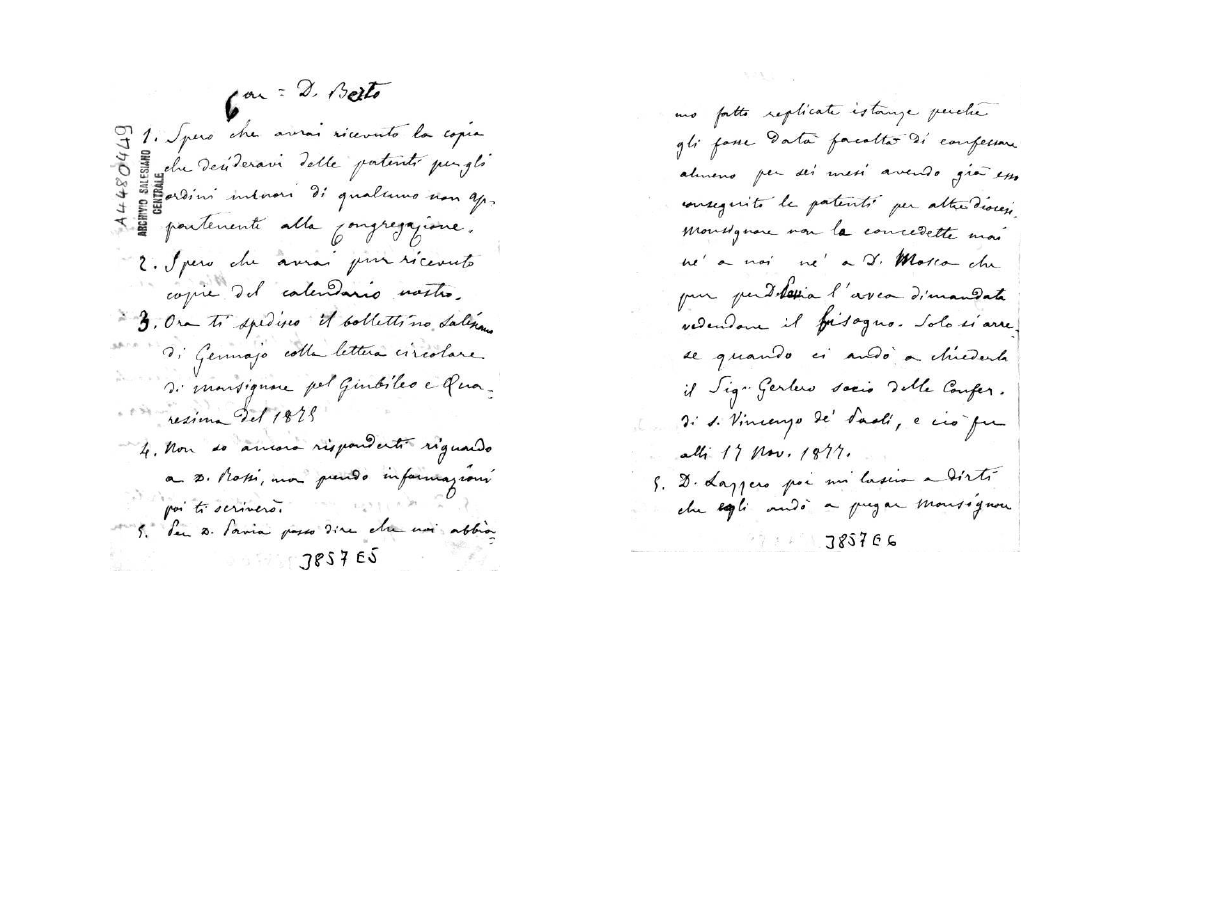 Car = D. Berto
A4480449
ARCHIVIO SALESIANO
CENTRALE
1. Spero che avrai ricevuto la copia
che desideravi delle patenti per gli
ordini minori di qualcuno non ap-
partenente alla Congregazione.
2. Spero che avrai pur ricevuto
copie del calendario nostro.
3. Ora ti spedisco il bollettino Salesiano
di Gennajo colla lettera circolare
di monsignore pel Giubileo e Qua-
resima del 1875
4. Non so ancora risponderti riguardo
a D. Rossi, ma prendo informazioni
poi ti scriverò.
5. Per D. Pavia posso dire che noi abbia=
3857E5
mo fatto replicate istanze perchè
gli fosse data facoltà di confessare
almeno per sei mesi avendo già esso
conseguito le patenti per altre diocesi.
Monsignore non la concedette mai
nè a noi nè a D. Mosca che
pur per D. Pavia l'avea dimandata
vedendone il bisogno. Solo si arre-
se quando ci andò a chiederla
il Sig. Gerlero socio delle Confer.
di S. Vincenzo de' Paoli, e ciò fu
alli 17 Nov. 1877.
5. D. Lazzero poi mi lascia a dirti
che egli andò a pregar Monsignore
3857E6